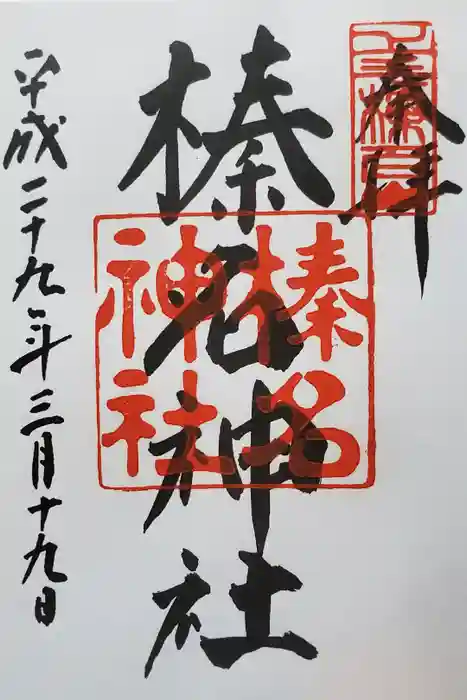 奉拝
榛名神社
榛名
神社
平成二十九年三月十九日